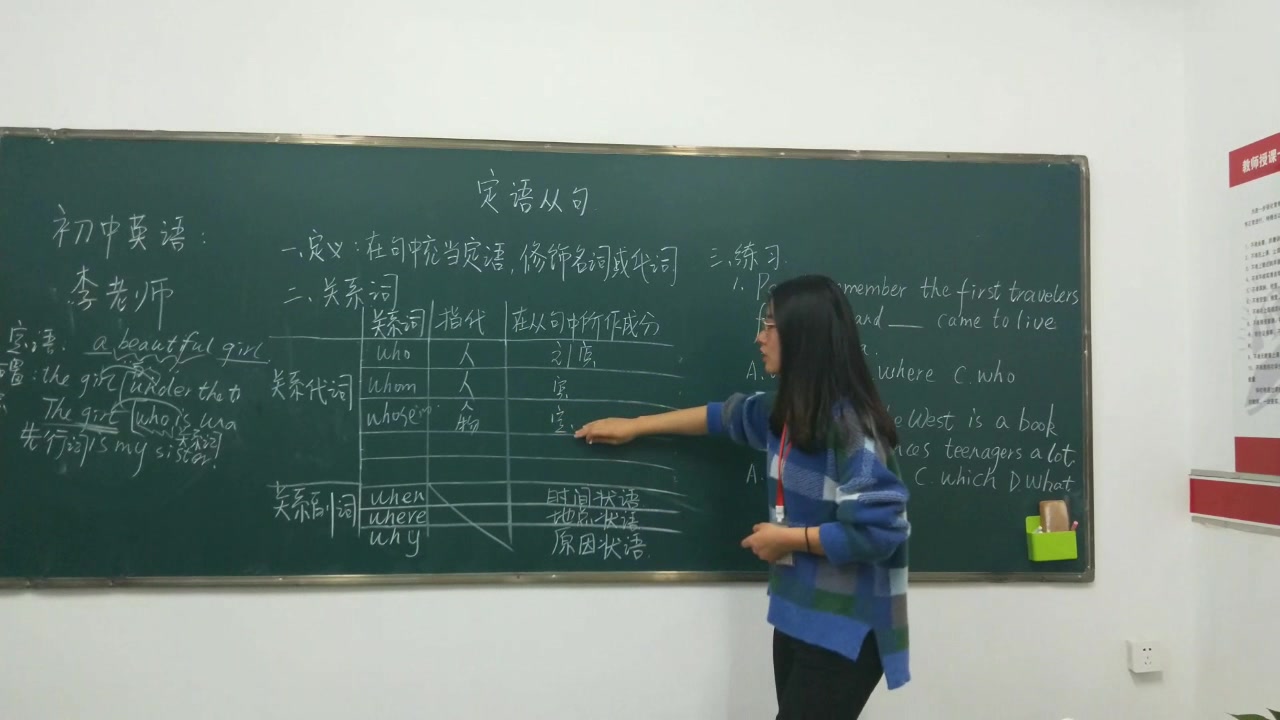 定语从句
初中英语：
李老师
定语. a beautiful girl.
置: the girl under the t
The girl who is wea
先行词 is my sister. 关系词
一、定义：在句中充当定语，修饰名词或代词
二、关系词
关系词 指代 在从句中所作成分
关系代词
who 人 主、宾
whom 人 宾
whose 人 物 定.
关系副词
when 时间状语
where 地点状语
why 原因状语.
三、练习
1. P member the first travelers
and ___ came to live
A. where C. who
e West is a book
nces teenagers a lot.
A. C. which D. What
教师授课